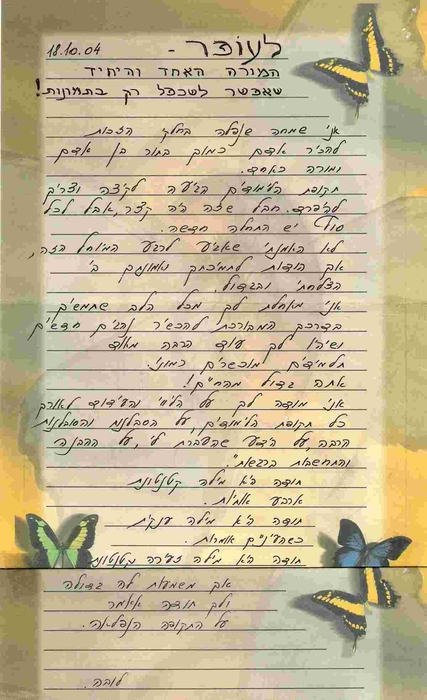 18.10.04 לעופר -
המורה האחד והיחיד
שאפשר לשכפל רק בתמונות!
אני שמחה שנפלה בחלקי הזכות
להכיר אדם כמוך בתור בן אדם
ומורה כאחד.
תקופת הלימודים הגיעה לקיצה וצריך
להיפרד. חבל שזה היה קצר, אבל לכל
סוף יש התחלה חדשה.
לא האמנתי שאגיע לרגע המיוחל הזה,
אך הודות לתמיכתך ואמונתך בי
הצלחתי ובגדול.
אני מאחלת לך מכל הלב שתמשיך
בדרכך המבורכת להכשיר נהגים חדשים
ושיהיו לך עוד הרבה מאוד
תלמידים מוכשרים כמוני.
אתה גדול מהחיים!
אני מודה לך על הליווי והעידוד לאורך
כל תקופת הלימודים, על הסבלנות והסובלנות
הרבה, על הידע שהעברת לי, על ההבנה
וההתחשבות ברגשותיי.
תודה היא מילה קטנטונת
ארבע אותיות.
תודה היא מילה ענקית
כשהעיניים אומרות.
תודה היא מילה צעירה וקטנטונת
אך משמעות לה גדולה
ולכן תודה איומר
על התקופה הנפלאה.
לובה.